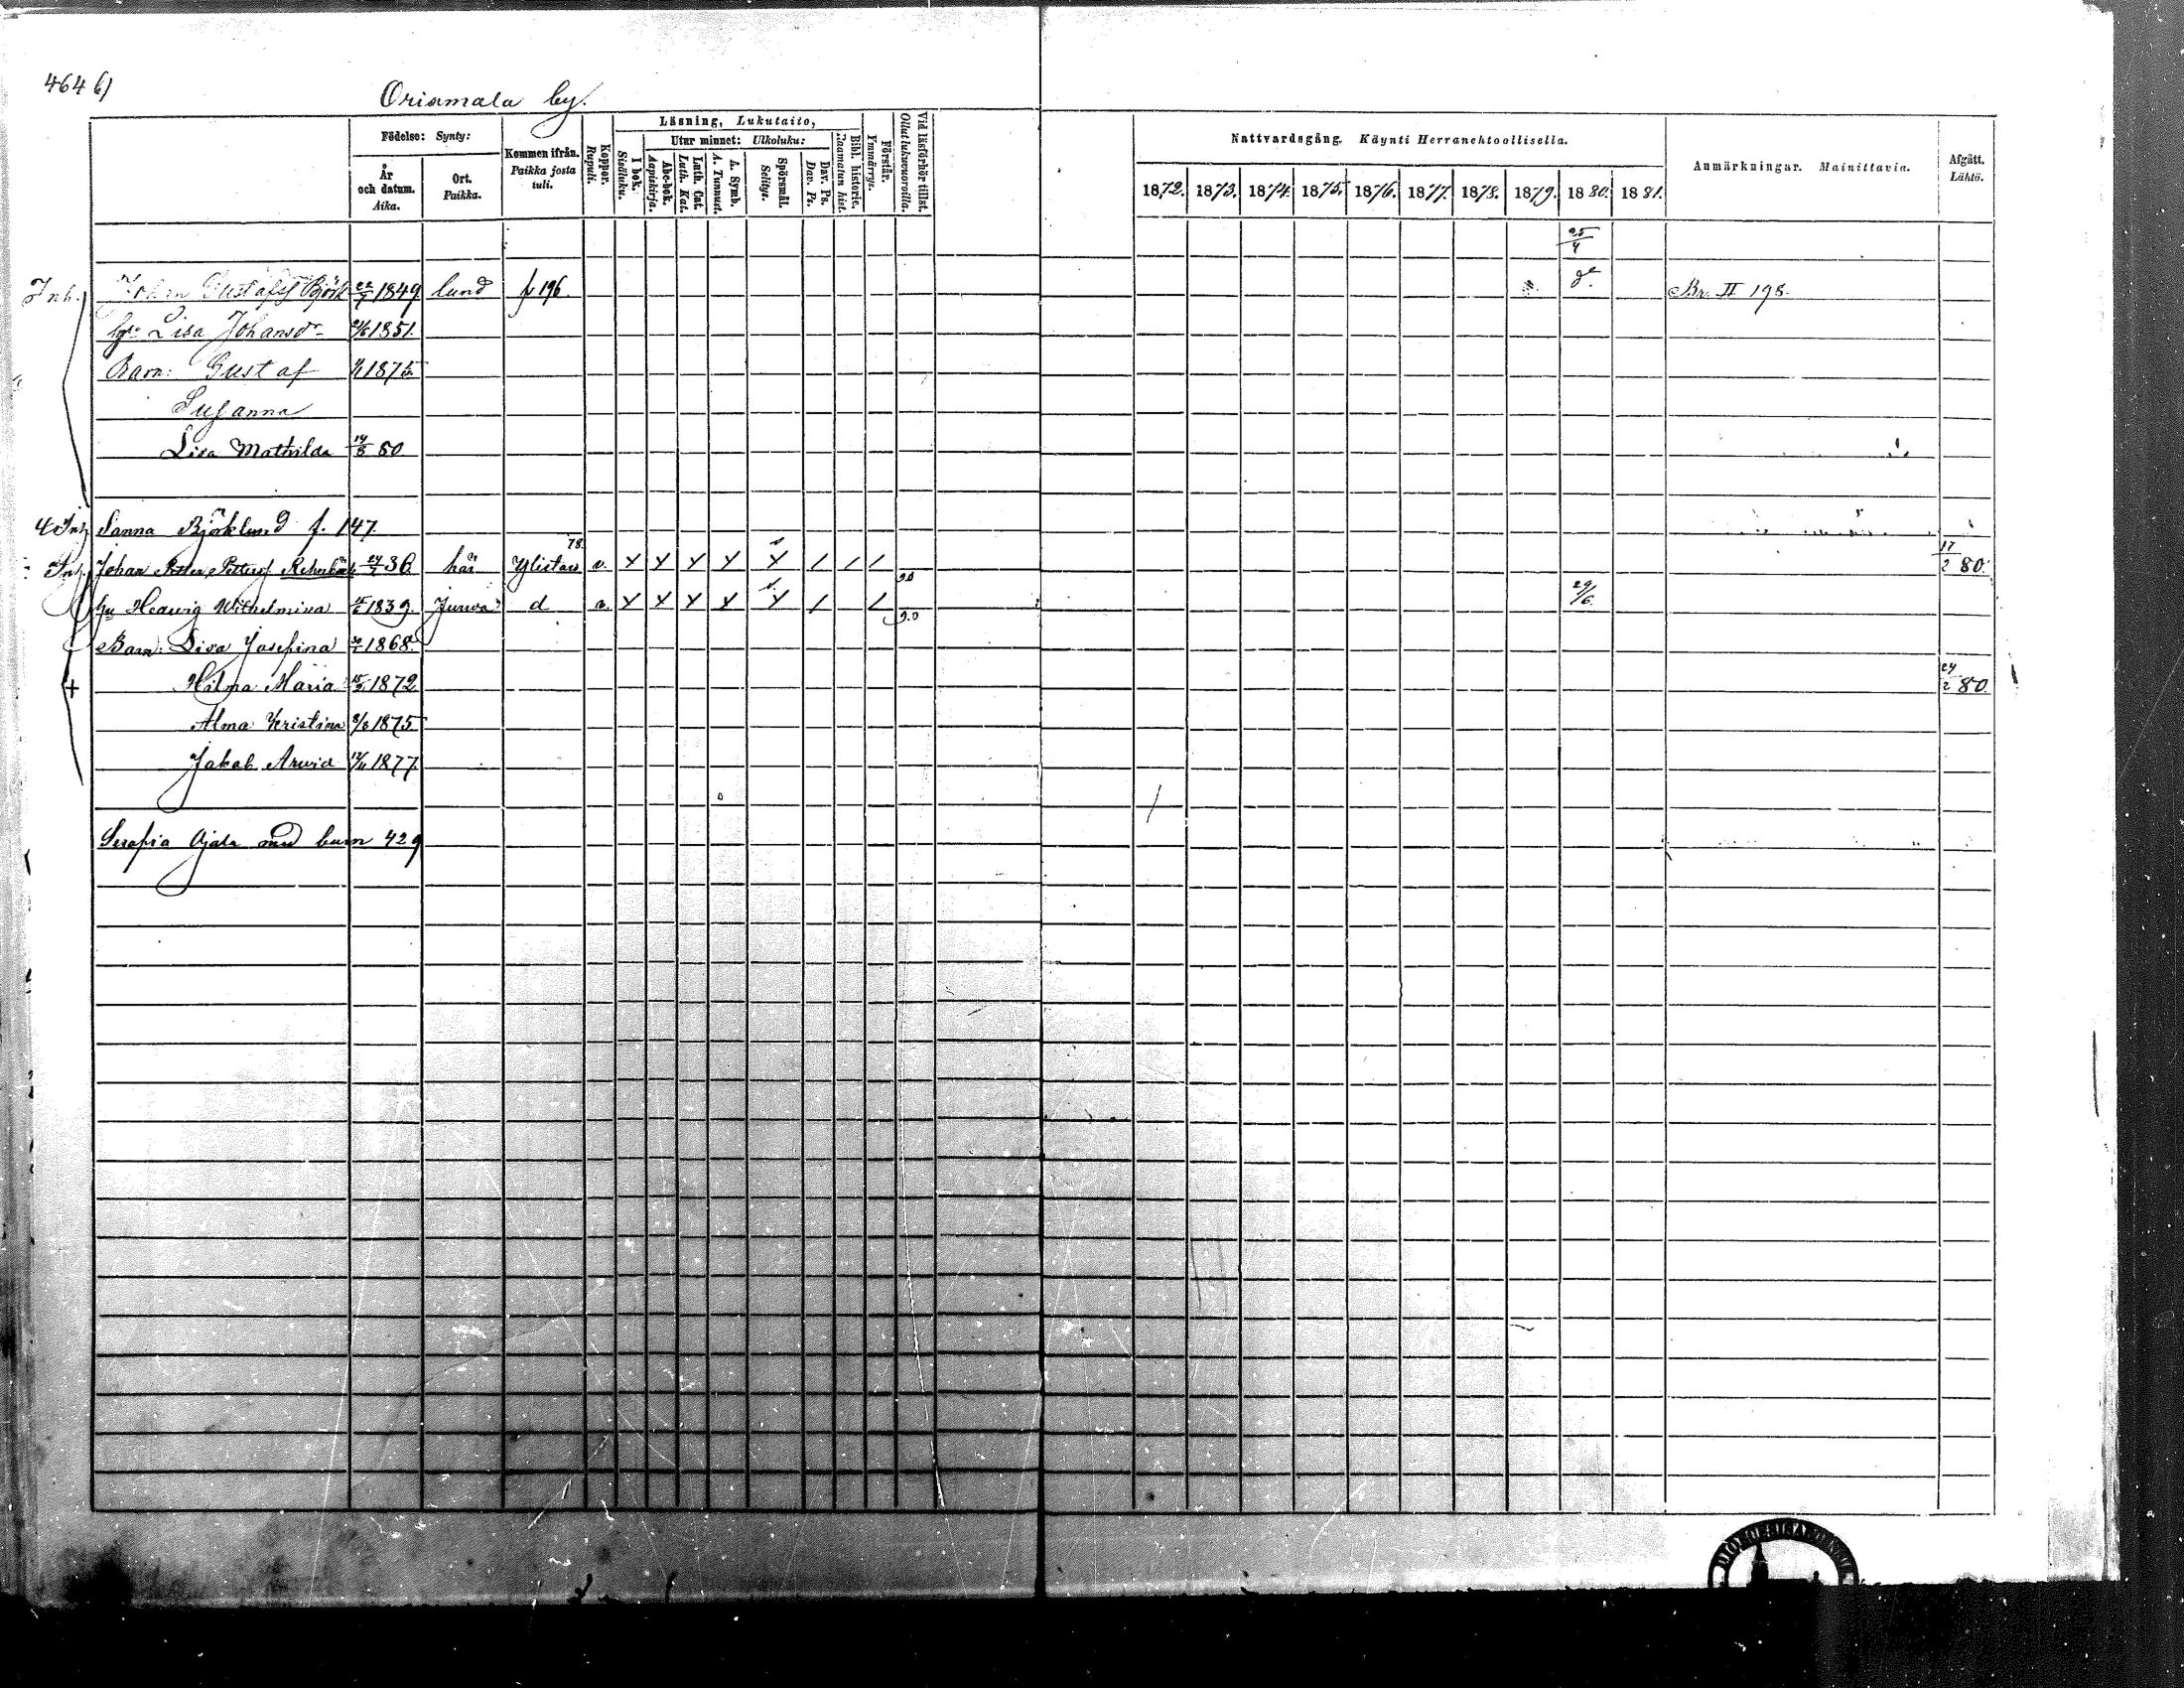 464 b)
Orismala by.
Födelse: Synty:
År och datum. Aika.
Ort. Paikka.
Kommen ifrån. Paikka josta tuli.
Koppor. Rupuli.
Läsning, Lukutaito,
I bok. Sisäluku.
Utur minnet: Ulkoluku:
Abc-bok. Aapiskirja.
Luth. Cat. Luth. Kat.
A. Symb. A. Tunnust.
Spörsmål. Selitys.
Dav. Ps. Dav. Ps.
Bibl. historie. Raamatun hist.
Förstår. Ymmärrys.
Vid läsförhör tillst. Ollut lukuvuoroilla.
Nattvardsgång. Käynti Herranehtoollisella.
1872. 1873. 1874. 1875. 1876. 1877. 1878. 1879. 1880. 1881.
Anmärkningar. Mainittavia.
Afgått. Lähtö.
25/4
Inh. Johan Gustafsf Björk 22/7 1849 lund f 196 Br. II 198.
Lisa Johansdr 1851.
Barn: Gustaf 1875
Susanna
Lisa Mathilda 80
Sanna Björklund f. 147
78.
Inh. Johan Pettersf 36 här Ylistaro v. 17/2 80.
90
hu Hedvig Wilhelmina 1839. Jurva d v. 29/6.
90
Barn: Lisa Josefina 1868
+ Hilma Maria 1872 24/2 80.
Alma Kristina 1875
Jakob Arvid 1877
Serafia Ojala med barn 429